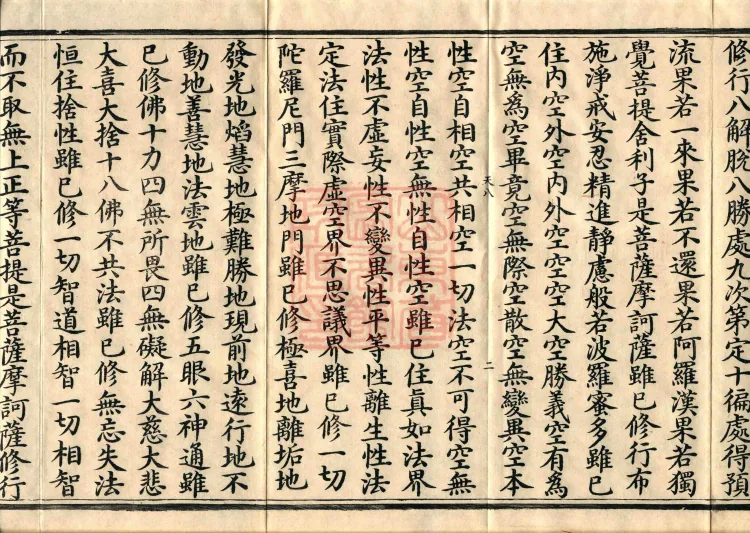 修行八解脫八勝處九次第定十徧處得預
流果若一來果若不還果若阿羅漢果若獨
覺菩提舍利子是菩薩摩訶薩雖已修行布
施淨戒安忍精進靜慮般若波羅蜜多雖已
住內空外空內外空空空大空勝義空有為
空無為空畢竟空無際空散空無變異空本
天八 二
性空自相空共相空一切法空不可得空無
性空自性空無性自性空雖已住真如法界
法性不虛妄性不變異性平等性離生性法
定法住實際虛空界不思議界雖已修一切
陀羅尼門三摩地門雖已修極喜地離垢地
發光地焰慧地極難勝地現前地遠行地不
動地善慧地法雲地雖已修五眼六神通雖
已修佛十力四無所畏四無礙解大慈大悲
大喜大捨十八佛不共法雖已修無忘失法
恒住捨性雖已修一切智道相智一切相智
而不取無上正等菩提是菩薩摩訶薩修行